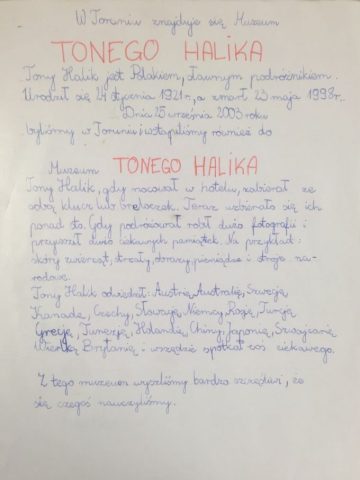 W Toruniu znajduje się Muzeum
TONEGO HALIKA
Tony Halik jest Polakiem, sławnym podróżnikiem.
Urodził się 24 stycznia 1921 r., a zmarł 23 maja 1998 r.
Dnia 25 września 2005 roku
byliśmy w Toruniu i wstąpiliśmy również do
Muzeum TONEGO HALIKA
Tony Halik, gdy nocował w hotelu, zabierał ze
sobą klucz lub breloczek. Teraz uzbierało się ich
ponad sto. Gdy podróżował robił dużo fotografii i
przywoził dużo ciekawych pamiątek. Na przykład:
skóry zwierząt, strzały, obrazy, pieniądze i stroje na-
rodowe.
Tony Halik odwiedził: Austrię, Australię, Szwecję,
Kanadę, Czechy, Słowację, Niemcy, Rosję, Turcję
Grecję, Tunezję, Holandię, Chiny, Japonię, Szwajcarię
Wielką Brytanię i wszędzie spotkał coś ciekawego.
Z tego muzeum wyszliśmy bardzo szczęśliwi, że
się czegoś nauczyliśmy.